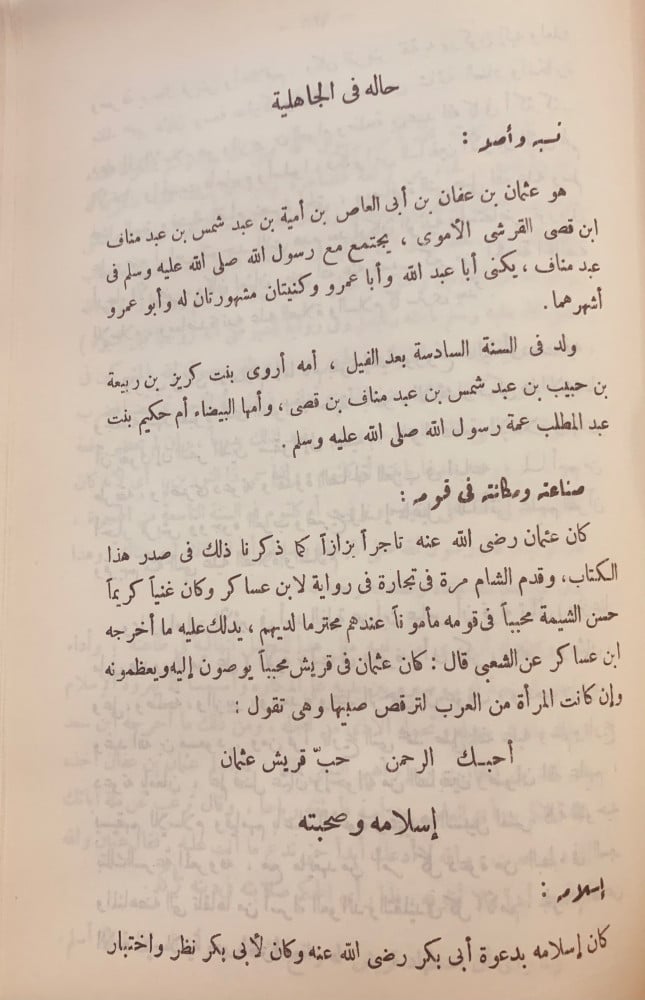 حاله فى الجاهلية
نسبه وأصله :
هو عثمان بن عفان بن أبى العاص بن أمية بن عبد شمس بن عبد مناف
ابن قصى القرشى الأموى ، يجتمع مع رسول الله صلى الله عليه وسلم فى
عبد مناف ، يكنى أبا عبد الله وأبا عمرو وكنيتان مشهورتان له وأبو عمرو
أشهرهما .
ولد فى السنة السادسة بعد الفيل ، أمه أروى بنت كريز بن ربيعة
بن حبيب بن عبد شمس بن عبد مناف بن قصى ، وأمها البيضاء أم حكيم بنت
عبد المطلب عمة رسول الله صلى الله عليه وسلم .
صناعته ومكانته فى قومه :
كان عثمان رضى الله عنه تاجراً بزازاً كما ذكرنا ذلك فى صدر هذا
الكتاب، وقدم الشام مرة فى تجارة فى رواية لابن عساكر وكان غنياً كريماً
حسن الشيمة محبباً فى قومه مأموناً عندهم محترما لديهم ، يدلك عليه ما أخرجه
ابن عساكر عن الشعبى قال : كان عثمان فى قريش محبباً يوصون إليه ويعظمونه
وإن كانت المرأة من العرب لترقص صبيها وهى تقول :
أحبـك الرحمن حبّ قريش عثمان
إسلامه وصحبته
إسلامه :
كان إسلامه بدعوة أبى بكر رضى الله عنه وكان لأبى بكر نظر واختبار